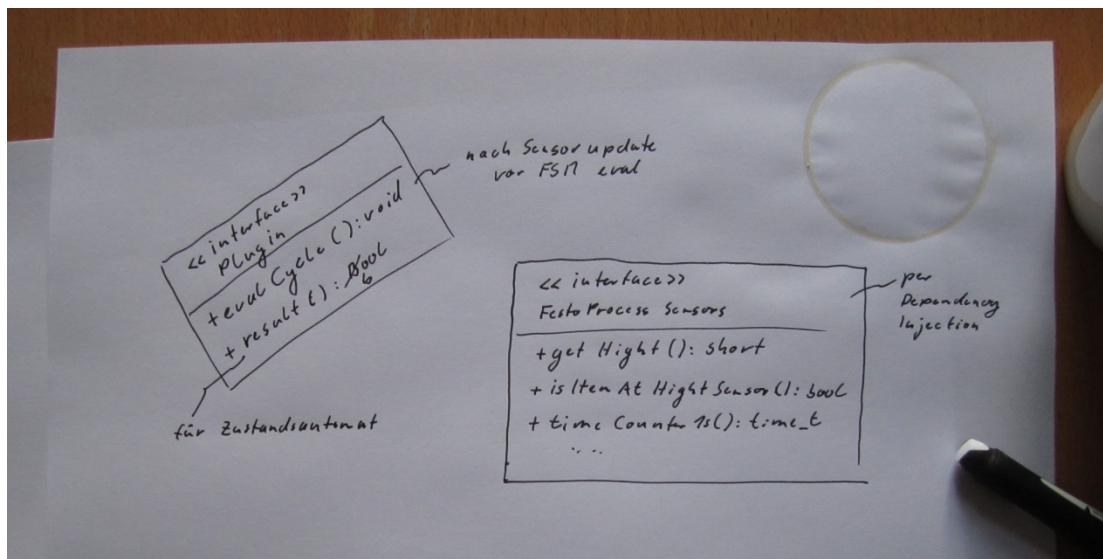 <<interface>>
Plugin
+ evalCycle(): void
+ result(): bool
nach Sensorupdate
vor FSM eval
für Zustandsautomat
<<interface>>
FestoProcessSensors
+ getHight(): short
+ isItemAtHightSensor(): bool
+ timeCounter1s(): time_t
....
per
Dependency
Injection